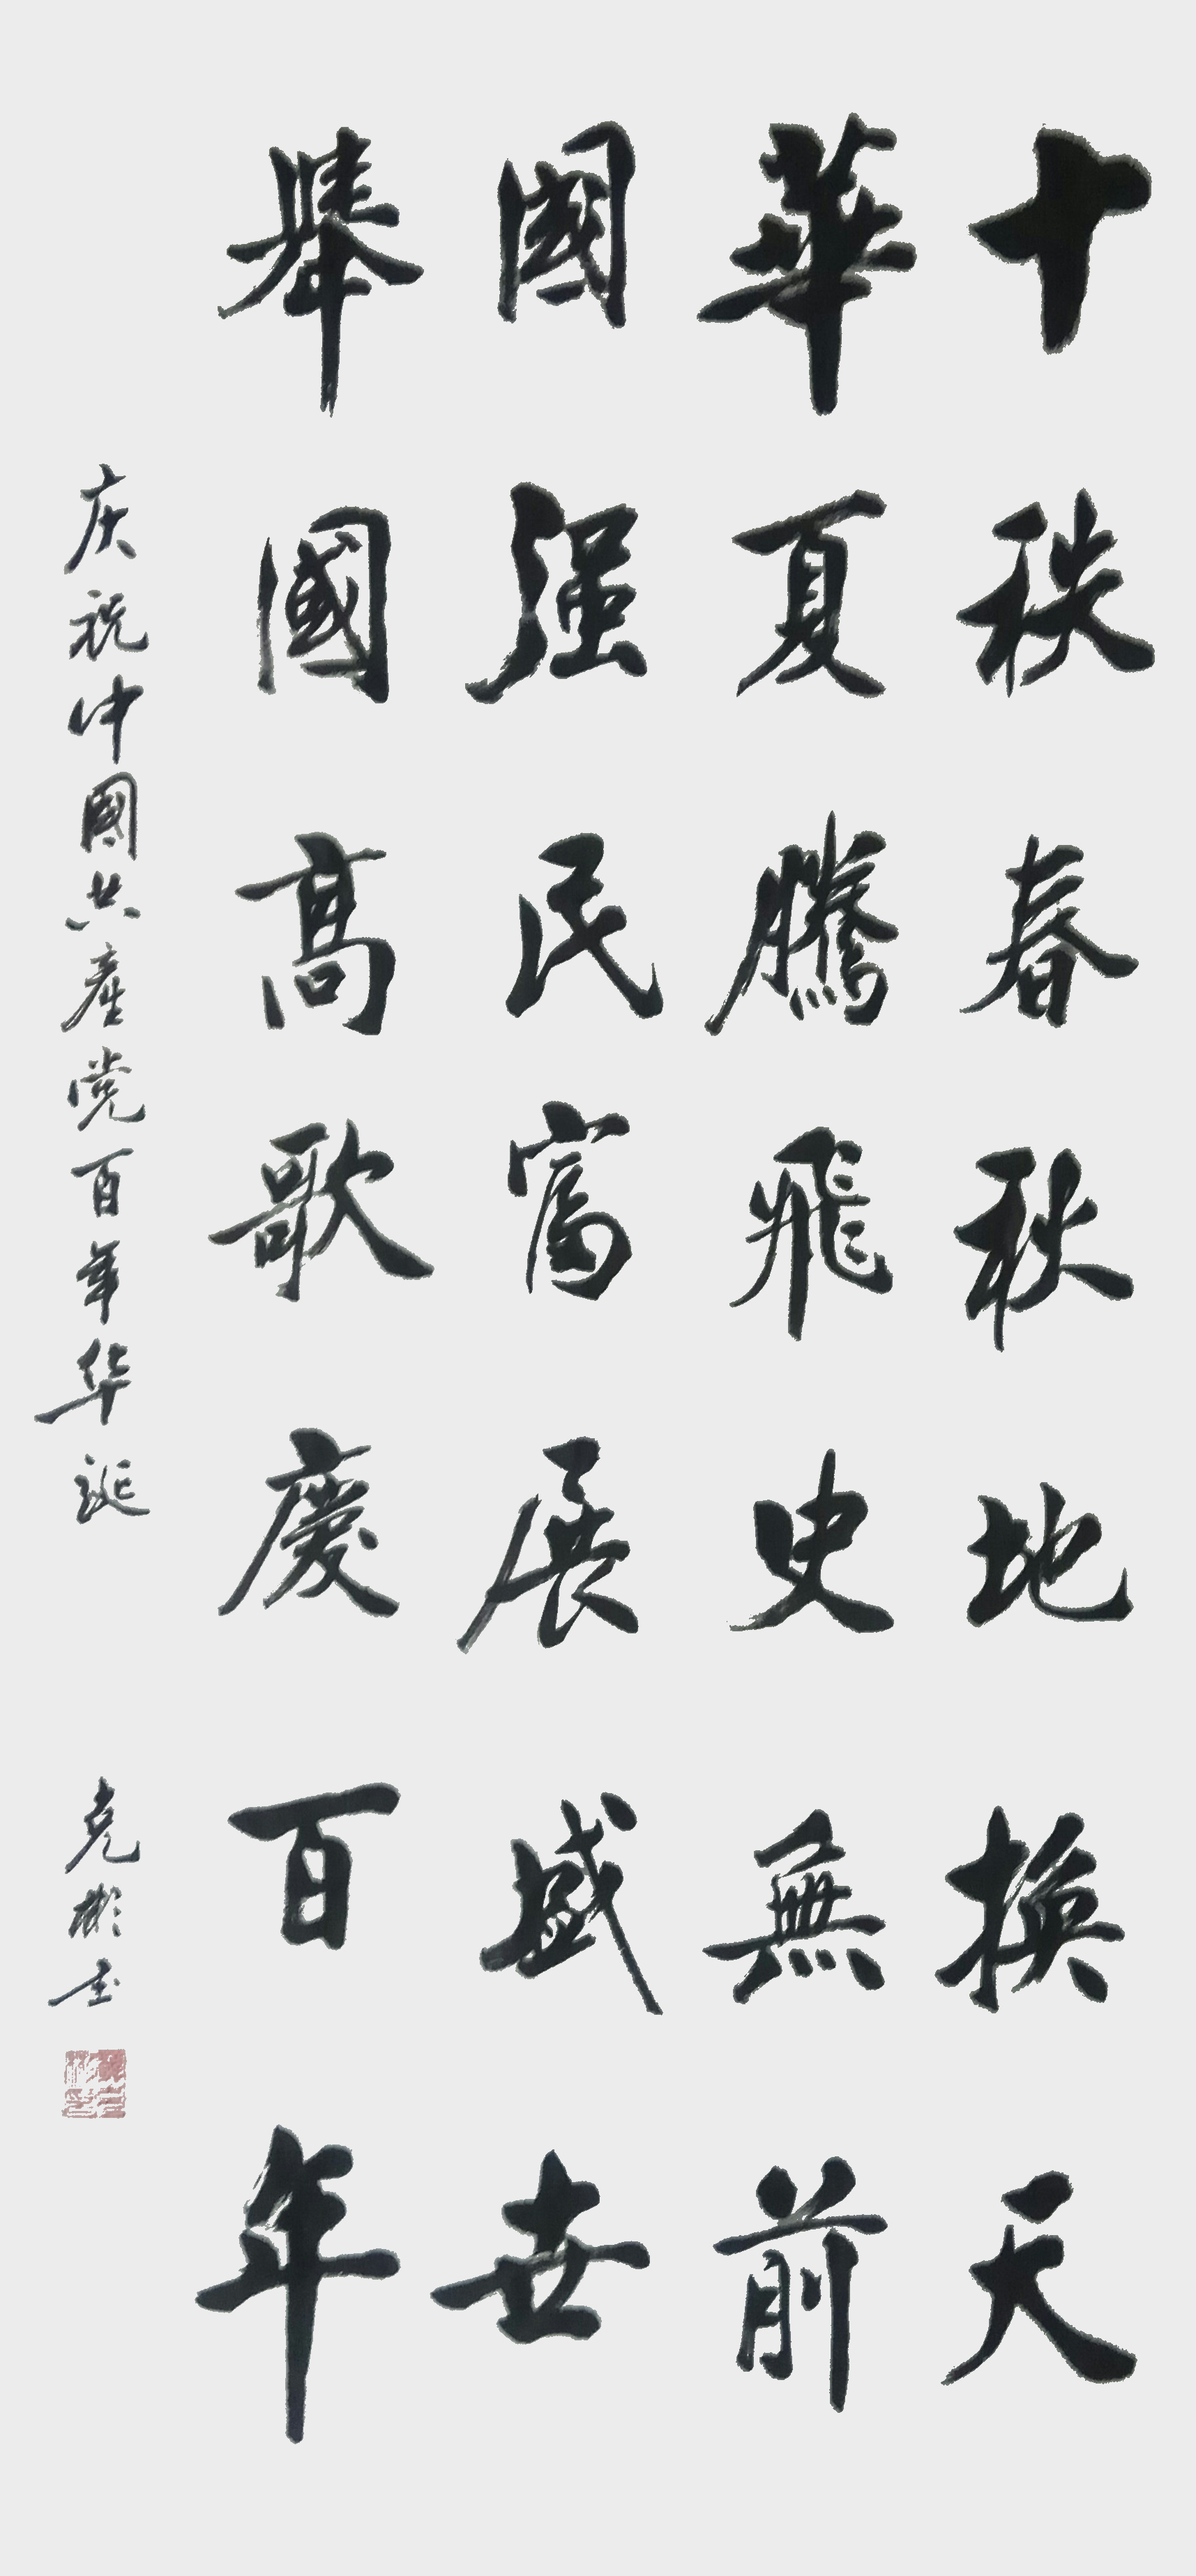 十秩春秋地換天
華夏騰飛史無前
國强民富展盛世
舉國高歌慶百年
庆祝中國共產党百年华诞
克彬书